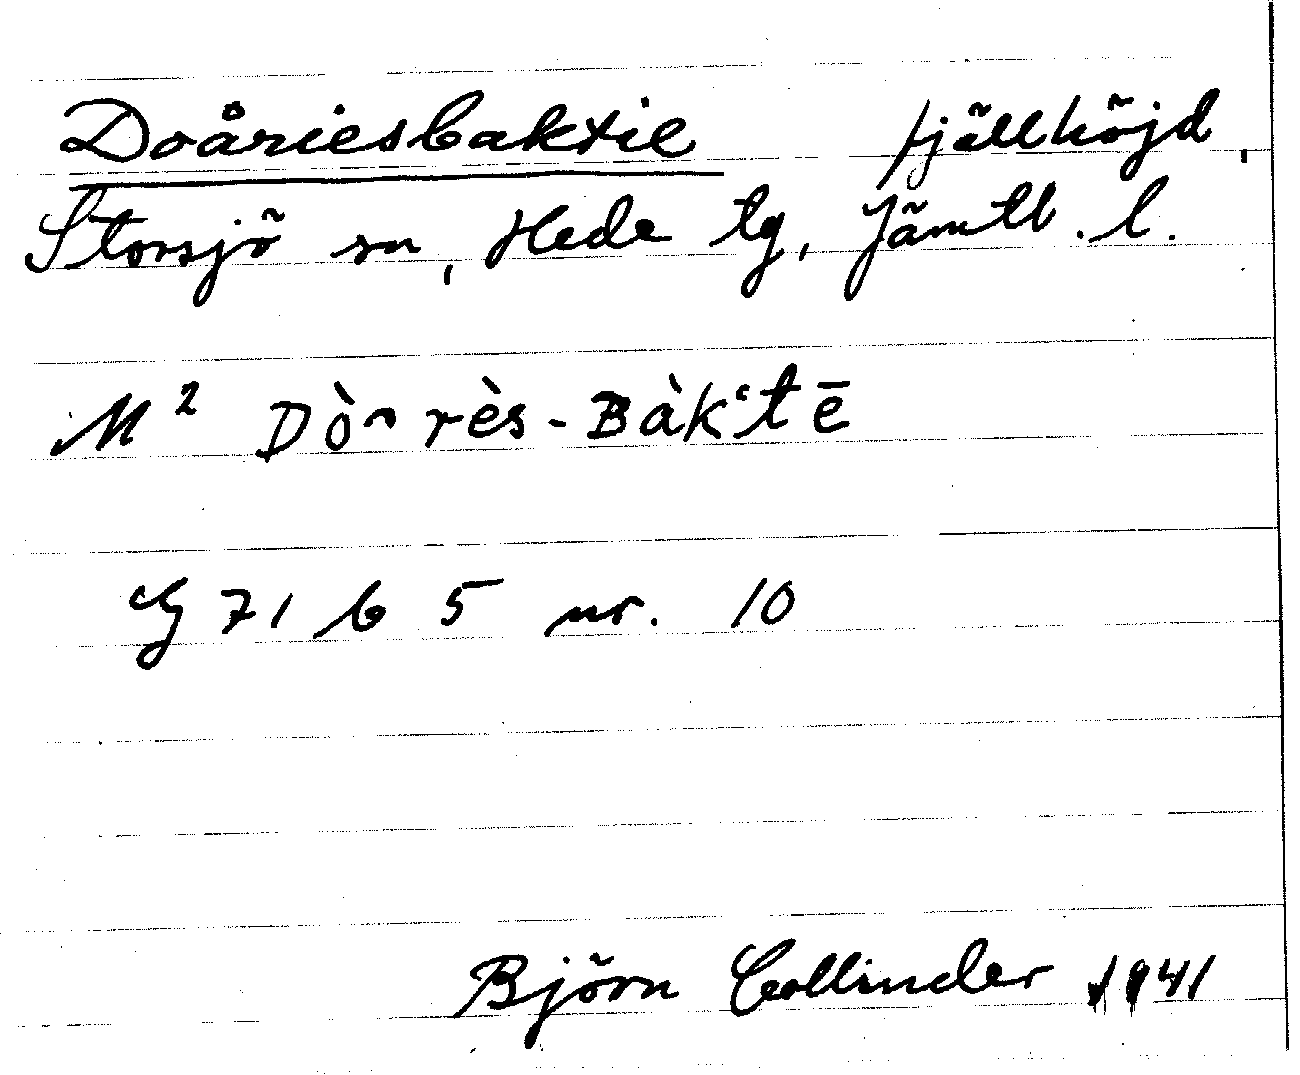 Doåriesbaktie fjällhöjd,
Storsjö sn, Hede tg, Jämtl. l.
M² Dòᴖrès-Bàkʻtē
G 71 b 5 nr. 10
Björn Collinder 1941